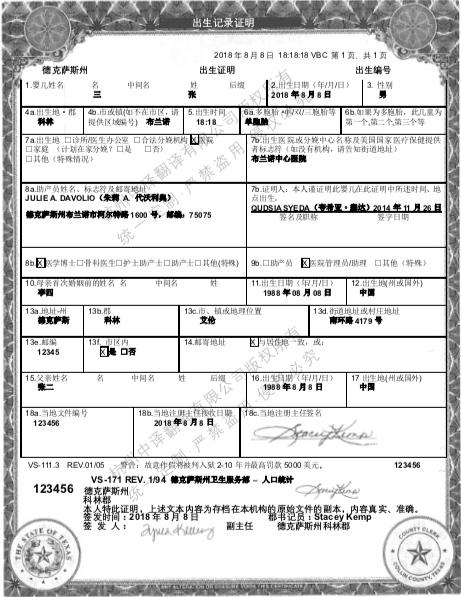 出生记录证明
2018 年 8 月 8 日 18:18:18 VBC 第 1 页、共 1 页
德克萨斯州 出生证明 出生编号
1.婴儿姓名 名 中间名 姓 后缀 2.出生日期（年/月/日） 3. 性别
三 张 2018 年 8 月 8 日 男
4a.出生地・郡 4b.市或镇(如不在市区,请提供区域编号) 5.出生时间 6a.多胞胎・单/双/三胞胎等 6b.如果为多胞胎，此儿童为第一个,第二个,第三个等
科林 布兰诺 18:18 单胞胎
7a.出生地 □诊所/医生办公室 □合法分娩机构 X医院
□家庭 （计划在家分娩？ □是 □否）
□其他（特殊情况）
7b.出生医院或分娩中心名称及美国国家医疗保健提供者标志符（如没有机构，请告知街道地址）
布兰诺中心医院
8a.助产员姓名、标志符及邮寄地址
JULIE A. DAVOLIO（朱莉 A. 代沃利奥）
德克萨斯州布兰诺市柯尔特路 1600 号，邮编：75075
7b.证明人：本人谨证明此婴儿在此证明中所述时间、地点出生。
QUDSIA SYEDA（夸希亚・塞达）2014 年 11 月 26 日
签名及职称 签字日期
8b.X医学博士□骨科医生□护士助产士□助产士□其他(特殊)
9b.□助产员 X医院管理员/助理 □其他（特殊）
10.母亲首次婚姻前的姓名 名 中间名 姓 11.出生日期（年/月/日） 12.出生地(州或外国)
李四 1988 年 08 月 08 日 中国
13a.地址-州 13b.郡 13c.市、镇或地理位置 13d.街道地址或村庄地址
德克萨斯 科林 艾伦 南环路 4179 号
13e.邮编 13f. 市区内 14.邮寄地址 X与居住地一致，或:
12345 X是 □否
15.父亲姓名 名 中间名 姓 后缀 16.出生日期（年/月/日） 17 出生地(州或外国)
张二 1988 年 8 月 8 日 中国
18a.当地文件编号 18b.当地注册主任接收日期 18c.当地注册主任签名
123456 2018 年 8 月 8 日
Stacey Kemp
VS-111.3 REV.01/05 警告：故意作假将被判入狱 2-10 年并最高罚款 5000 美元。 123456
VS-171 REV. 1/94 德克萨斯州卫生服务部 – 人口统计
123456 德克萨斯州
科林郡
Stacey Kemp
本人特此证明，上述文本内容为存档在本机构的原始文件的副本，内容真实、准确。
签发时间：2018 年 8 月 8 日 郡书记员：Stacey Kemp
签 发 人： 副主任 德克萨斯州科林郡
THE STATE OF TEXAS
COUNTY CLERK
COLLIN COUNTY, TEXAS